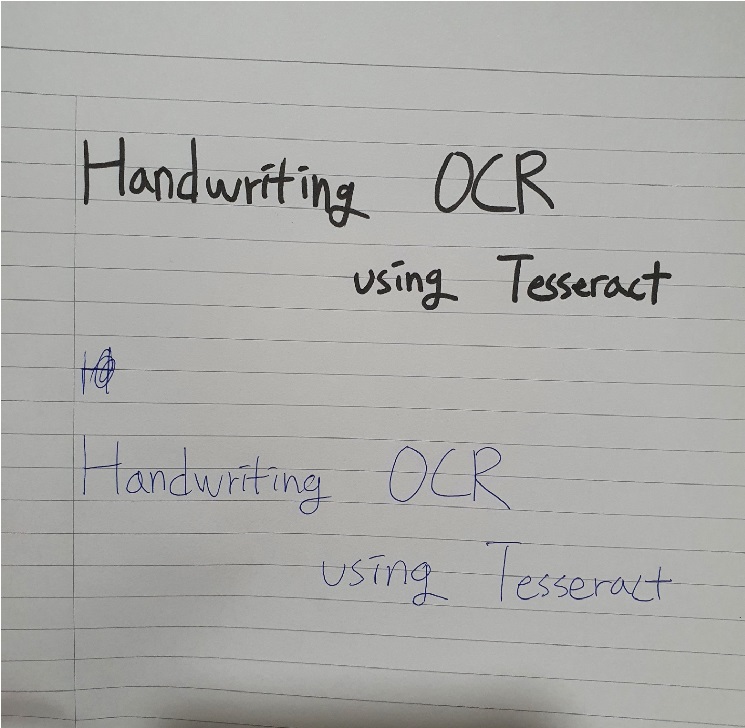 Handwriting OCR
using Tesseract
Handwriting OCR
using Tesseract